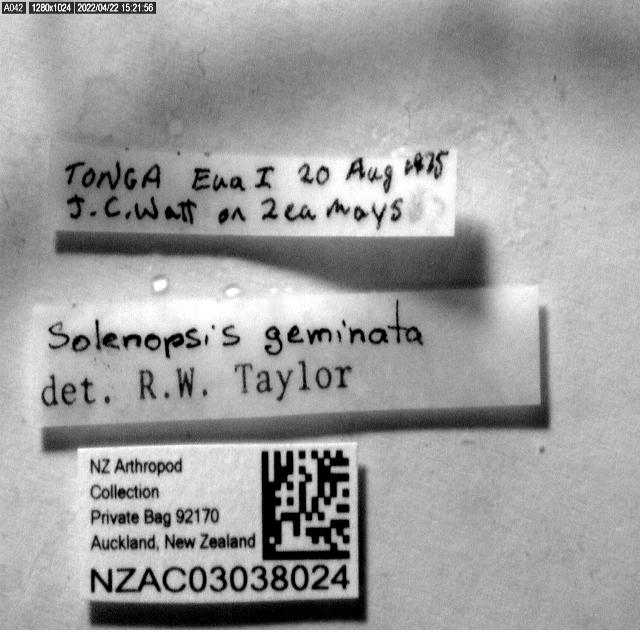 A042 1280x1024 2022/04/22 15:21:56
TONGA Eua I 20 Aug 1975
J.C.Watt on Zea mays
Solenopsis geminata
det. R.W. Taylor
NZ Arthropod
Collection
Private Bag 92170
Auckland, New Zealand
NZAC03038024